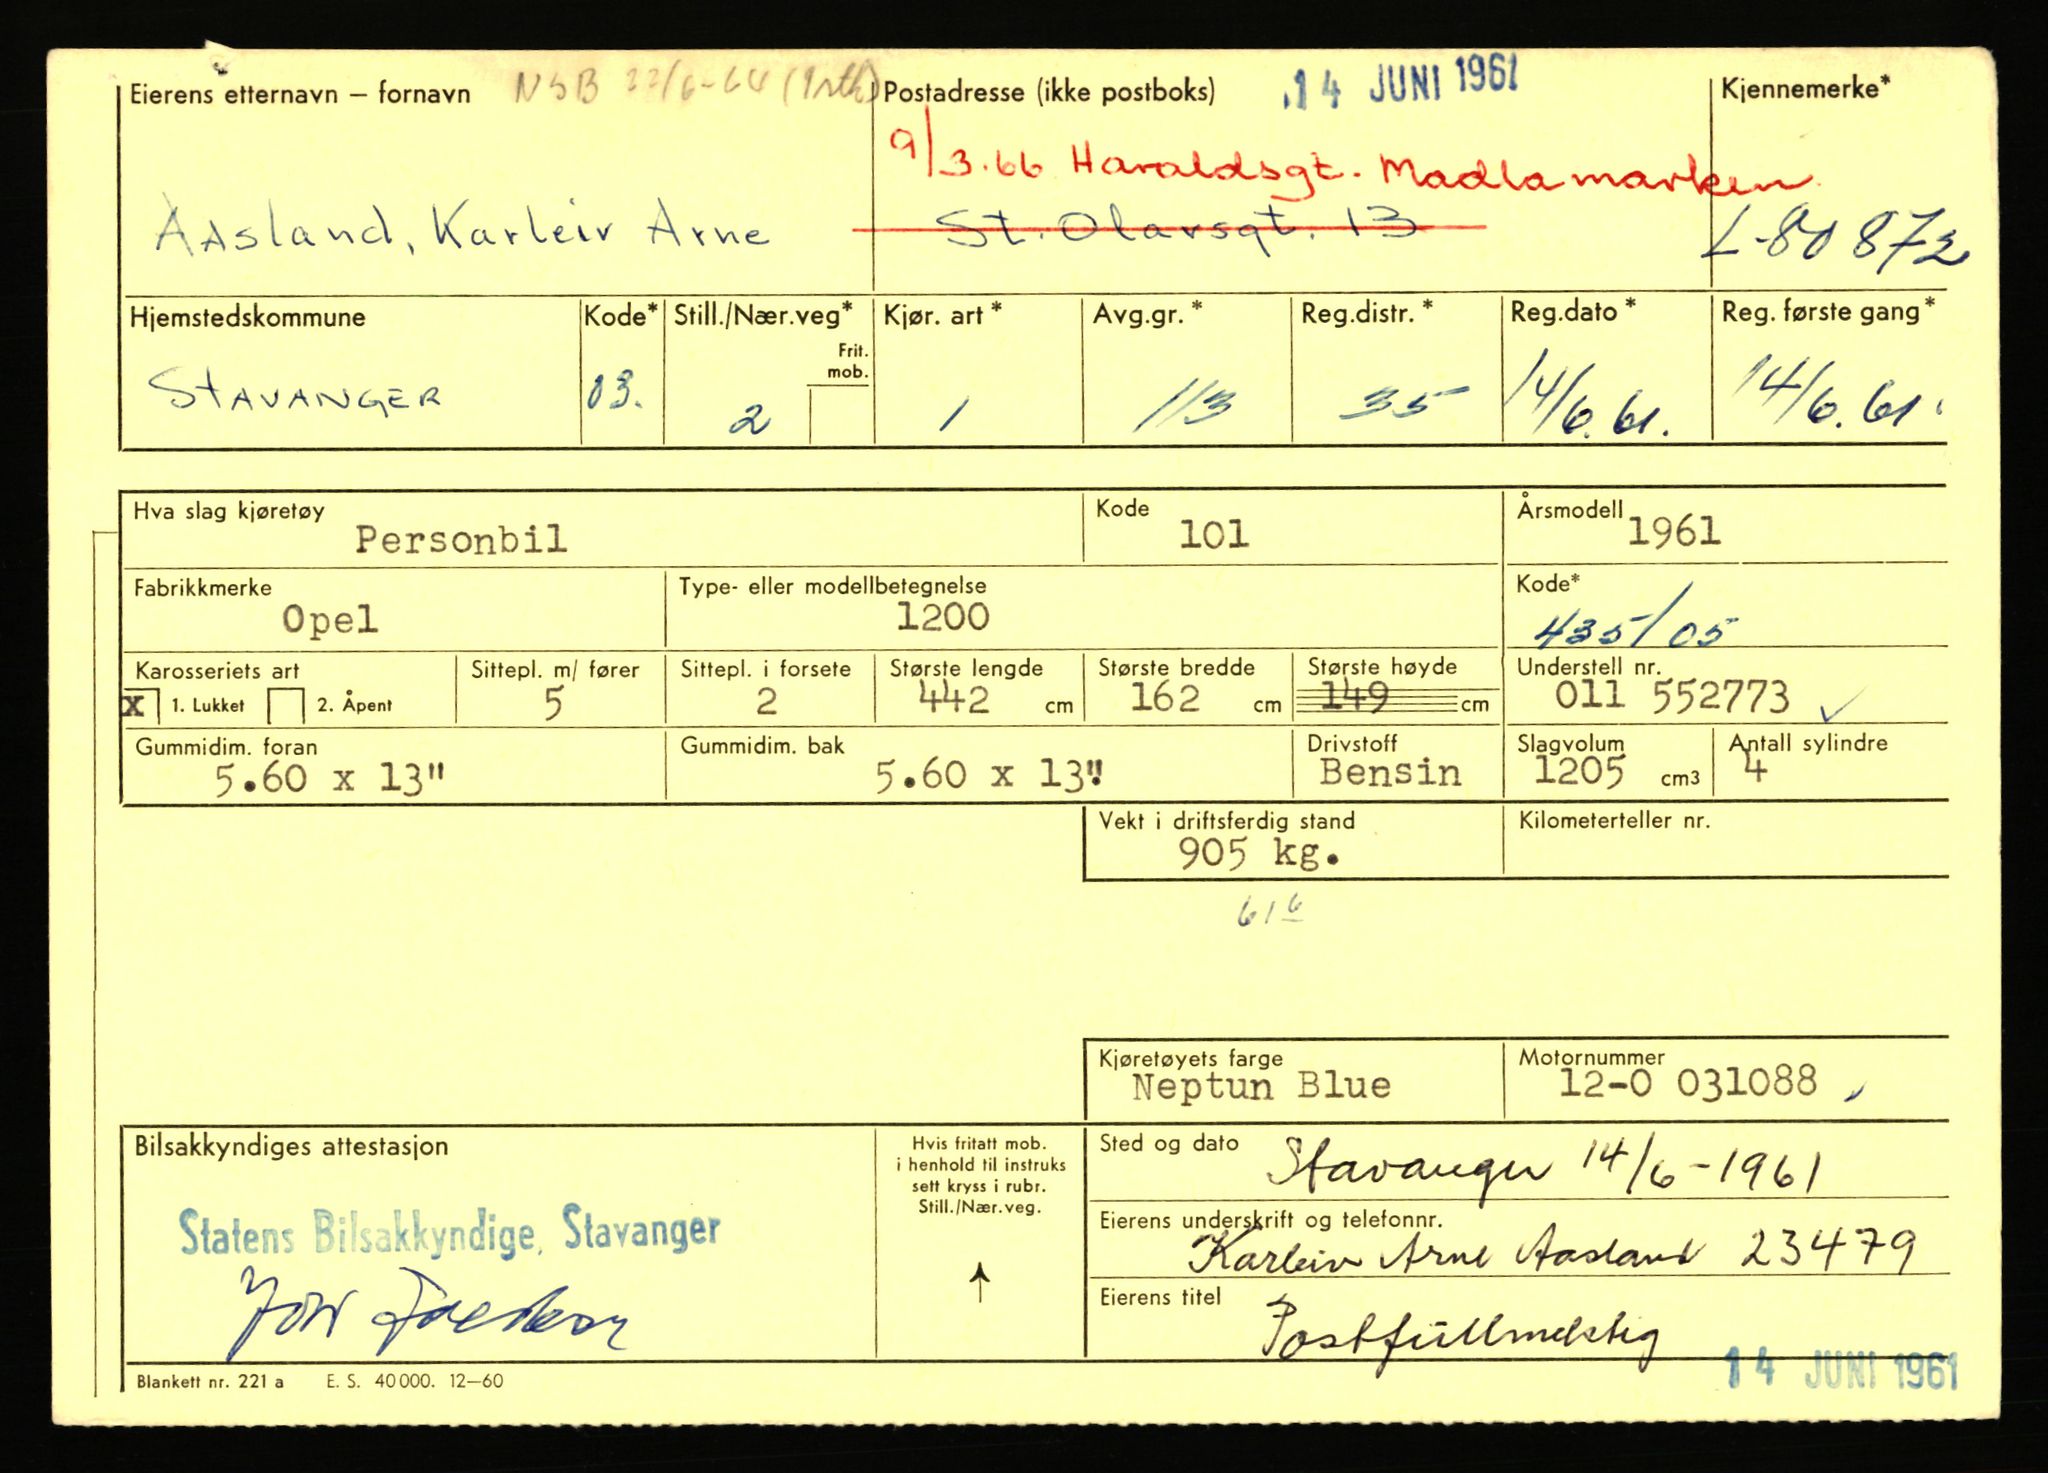 Eierens etternavn – fornavn NSB 22/6-64
Postadresse (ikke postboks) 14 JUNI 1961
Kjennemerke*
9/3.66 Haraldsgt. Madlamarken
Aasland, Karleiv Arne
St. Olavsgt. 13
L-80872
Hjemstedskommune Kode* Still./Nær.veg* Kjør. art* Avg.gr.* Reg.distr.* Reg.dato* Reg. første gang*
Frit. mob.
STAVANGER 03. 2 1 113 35 14/6.61. 14/6.61.
Hva slag kjøretøy Kode Årsmodell
Personbil 101 1961
Fabrikkmerke Type- eller modellbetegnelse Kode*
Opel 1200 435/05
Karosseriets art Sittepl. m/ fører Sittepl. i forsete Største lengde Største bredde Største høyde Understell nr.
x 1. Lukket 2. Åpent 5 2 442 cm 162 cm 149 cm 011 552773 ✓
Gummidim. foran Gummidim. bak Drivstoff Slagvolum Antall sylindre
5.60 x 13" 5.60 x 13" Bensin 1205 cm3 4
Vekt i driftsferdig stand Kilometerteller nr.
905 kg.
61 6
Kjøretøyets farge Motornummer
Neptun Blue 12-0 031088
Bilsakkyndiges attestasjon
Statens Bilsakkyndige, Stavanger
Hvis fritatt mob.
i henhold til instruks
sett kryss i rubr.
Still./Nær.veg.
↑
Sted og dato Stavanger 14/6-1961
Eierens underskrift og telefonnr.
Karleiv Arne Aasland 23479
Eierens titel
Postfullmektig
14 JUNI 1961
Blankett nr. 221 a E. S. 40 000. 12—60